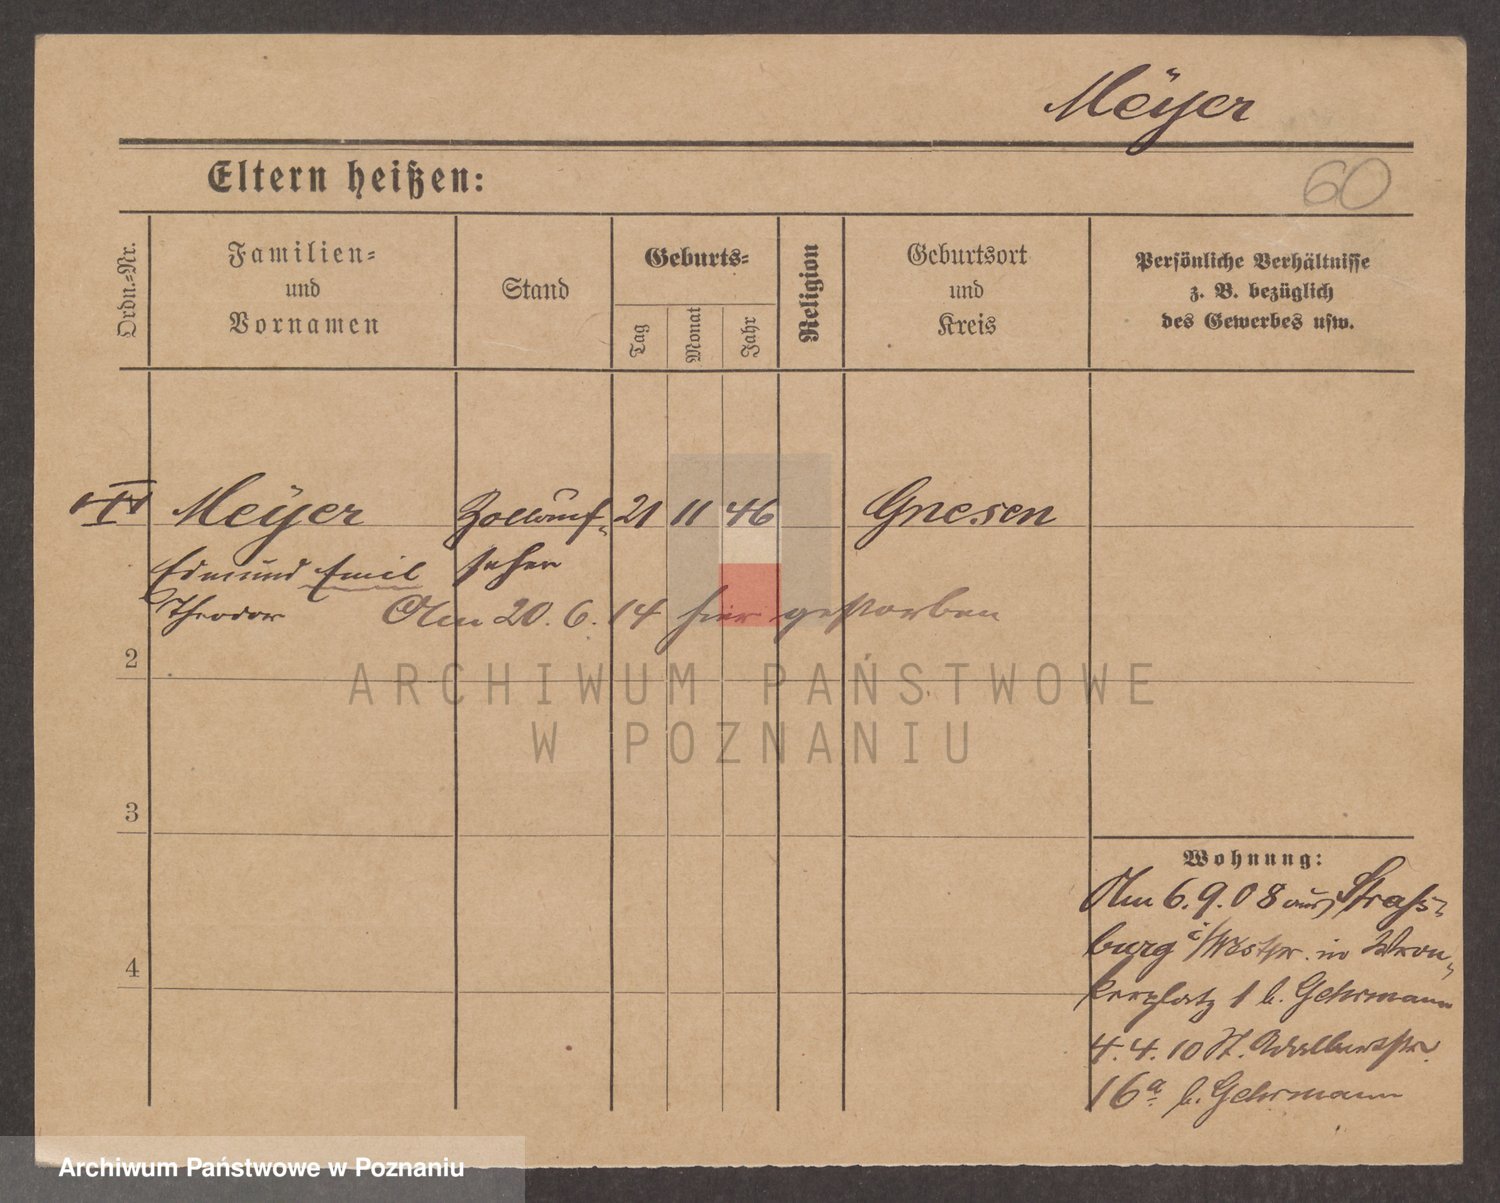 Meÿer
Eltern heißen:
60
Ordn.-Nr.
Familien-
und
Vornamen
Stand
Geburts-
Tag
Monat
Jahr
Religion
Geburtsort
und
Kreis
Persönliche Verhältnisse
z. B. bezüglich
des Gewerbes usw.
Meÿer Zollauf- 21 11 46 Gnesen
Edmund Emil seher
Theodor Am 20. 6. 14 hier gestorben
2
3
4
ARCHIWUM PAŃSTWOWE
W POZNANIU
Wohnung:
Am 6. 9. 08 aus Straß-
burg i/Westpr. in Wron-
kerplatz 1 b. Gehrmann
4. 4. 10 St. Adalbertstr.
16a b. Gehrmann
Archiwum Państwowe w Poznaniu